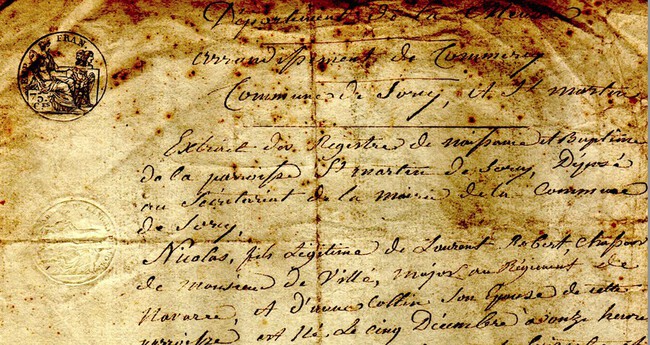 Departement de la Meuse
arrondissement de Commercy
Commune de Sorcy, et St martin
Extrait des Registre de naissance et Baptême
de la parroisse St martin de Sorcy, Déposé
au Secrétariat de la mairie de la Commune
de Sorcy,
Nicolas, fils Légitime de Laurent Robert, Chasseur
de monsieur de Villé, major au Régiment de
Navarre, et d'anne Collin son Epouse de cette
parroisse est Né Le cinq Décembre a onze heure